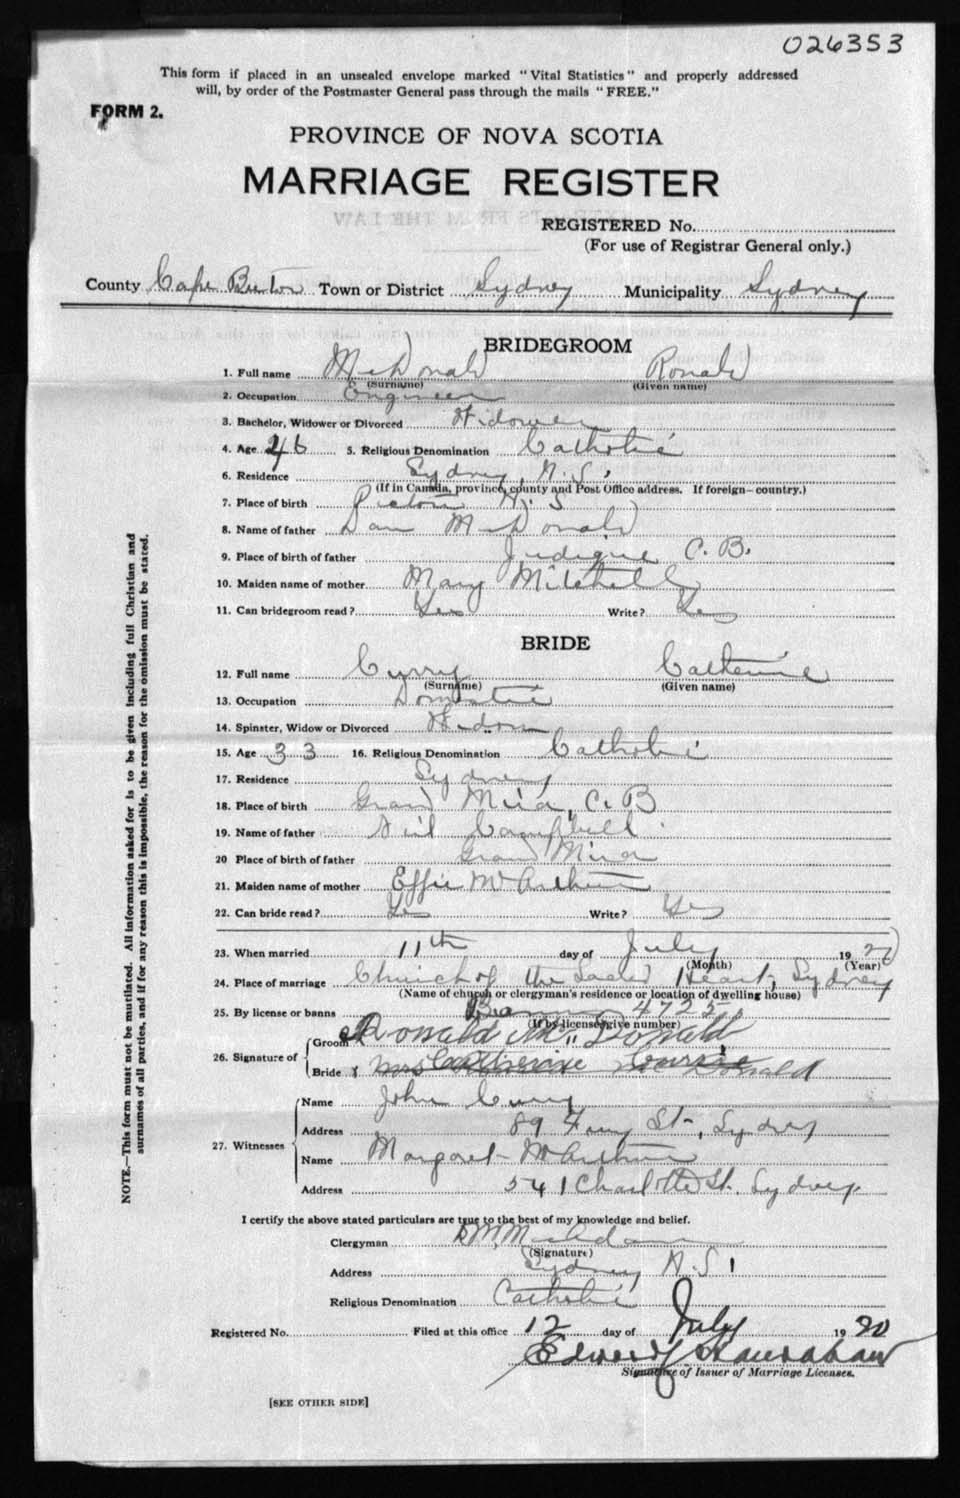 026353
This form if placed in an unsealed envelope marked "Vital Statistics" and properly addressed
will, by order of the Postmaster General pass through the mails "FREE."
FORM 2.
PROVINCE OF NOVA SCOTIA
MARRIAGE REGISTER
REGISTERED No.
(For use of Registrar General only.)
County Cape Breton Town or District Sydney Municipality Sydney
BRIDEGROOM
1. Full name McDonald Ronald
(Surname) (Given name)
2. Occupation Engineer
3. Bachelor, Widower or Divorced Widower
4. Age 46 5. Religious Denomination Catholic
6. Residence Sydney, N.S.
(If in Canada, province, county and Post Office address. If foreign—country.)
7. Place of birth Pictou N.S
8. Name of father Dan McDonald
9. Place of birth of father Judique C.B.
10. Maiden name of mother Mary Mitchell
11. Can bridegroom read? Yes Write? Yes
BRIDE
12. Full name Curry Catherine
(Surname) (Given name)
13. Occupation Domestic
14. Spinster, Widow or Divorced Widow
15. Age 33 16. Religious Denomination Catholic
17. Residence Sydney
18. Place of birth Grand Mira, C.B
19. Name of father Neil Campbell
20 Place of birth of father Grand Mira
21. Maiden name of mother Effie McArthur
22. Can bride read? Yes Write? Yes
23. When married 11th day of July 1920
(Month) (Year)
24. Place of marriage Church of the Sacred Heart, Sydney
(Name of church or clergyman's residence or location of dwelling house)
25. By license or banns 4725
(If by license, give number)
26. Signature of
Groom Ronald McDonald
Bride x Mrs Catherine McDonald
27. Witnesses
Name John Curry
Address 89 St., Sydney
Name Margaret McArthur
Address 541 Charlotte St. Sydney
I certify the above stated particulars are true to the best of my knowledge and belief.
Clergyman
(Signature)
Address Sydney, N.S.
Religious Denomination Catholic
Registered No. Filed at this office 12 day of July 1920
Signature of Issuer of Marriage Licenses.
[SEE OTHER SIDE]
NOTE.—This form must not be mutilated. All information asked for is to be given including full Christian and
surnames of all parties, and if for any reason this is impossible, the reason for the omission must be stated.